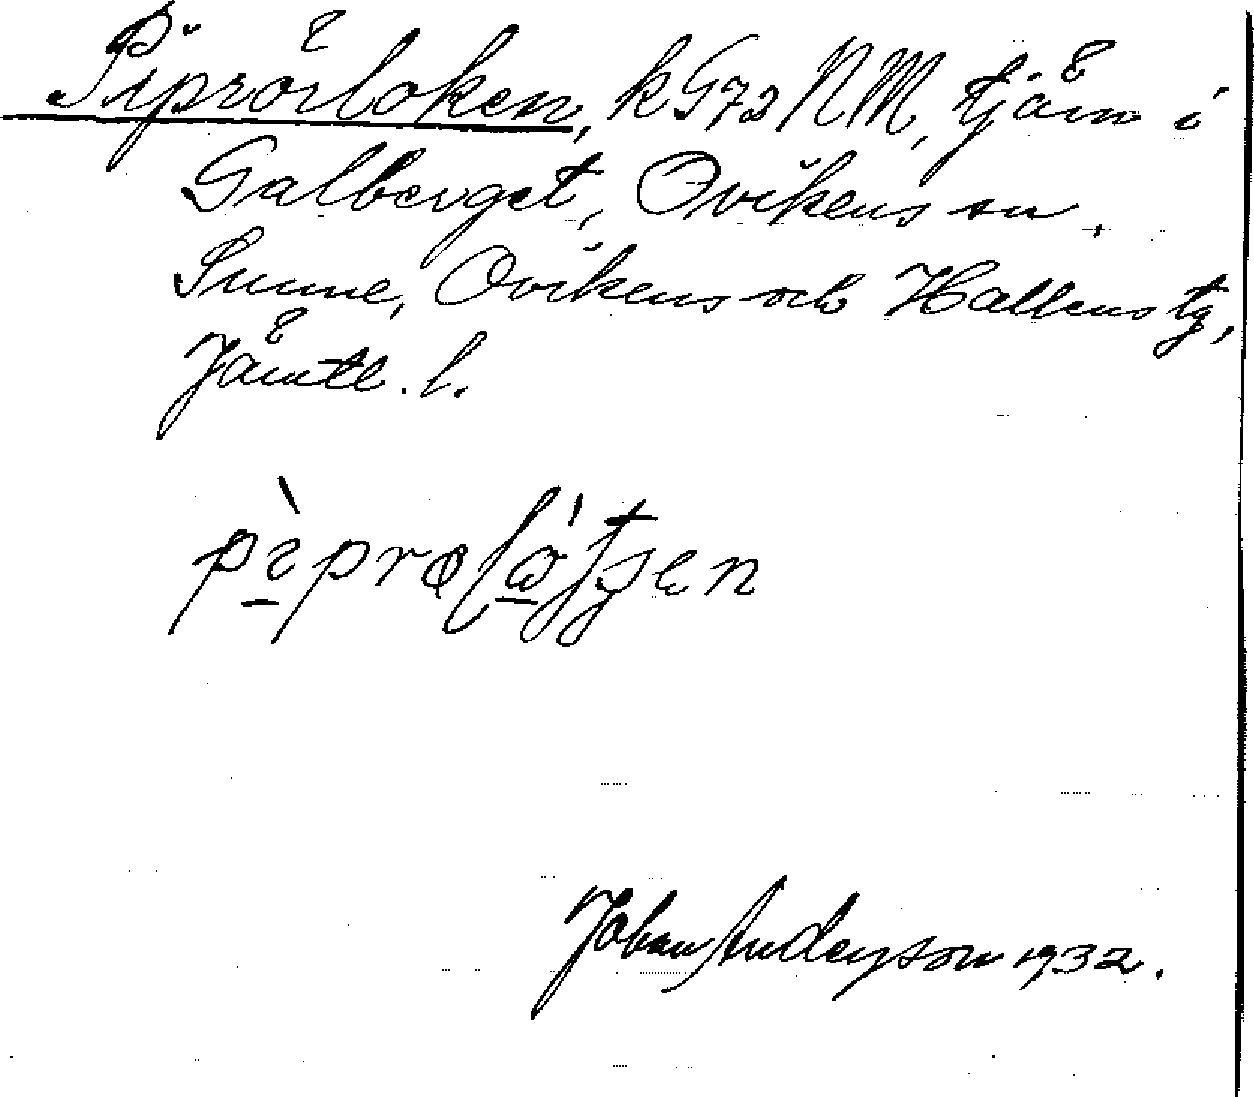 Piprörloken, k G73 NM, tjärn i
Galberget, Ovikens sn.
Sunne, Ovikens och Hallens tg,
Jämtl. l.
Johan Anderson 1932.